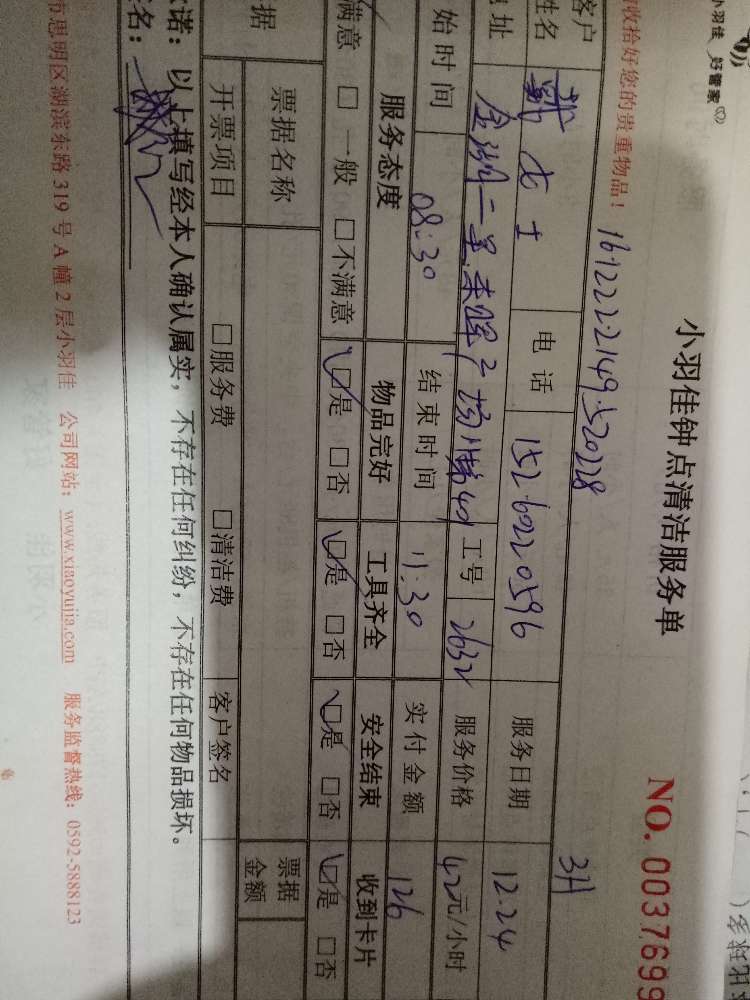 小羽佳 好管家
小羽佳钟点清洁服务单
NO. 0037699
收拾好您的贵重物品!
161222214952028
3H
客户姓名 戴女士 电话 15260220596 服务日期 12.24
地址 工号 2632 服务价格 42元/小时
始时间 08:30 结束时间 11:30 实付金额 126
服务态度 物品完好 工具齐全 安全结束 收到卡片
满意 □一般 □不满意 □是 □否 □是 □否 □是 □否 □是 □否
据 票据名称 票据金额
开票项目 □服务费 □清洁费 客户签名
诺:以上填写经本人确认属实,不存在任何纠纷,不存在任何物品损坏。
名:
市思明区湖滨东路319号A幢2层小羽佳 公司网站:www.xiaoyujia.com 服务监督热线:0592-5888123